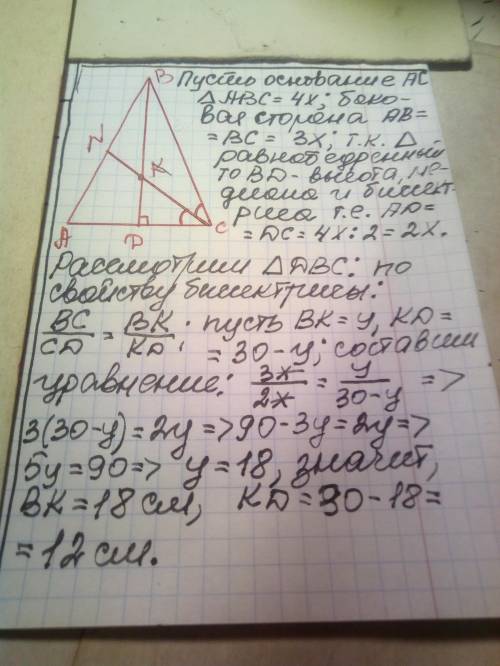 B
N
K
A
D
C
Пусть основание AC
△ABC = 4x; боко-
вая сторона AB =
= BC = 3x; т.к. △
равнобедренный
то BD - высота, ме-
диана и биссект-
риса т.е. AD =
= DC = 4x : 2 = 2x.
Рассмотрим △DBC: по
свойству биссектрисы:
BC/CD = BK/KD. пусть BK = y, KD =
= 30 - y; составим
уравнение: 3x/2x = y/30-y =>
3(30-y) = 2y => 90 - 3y = 2y =>
5y = 90 => y = 18, значит,
BK = 18 см, KD = 30 - 18 =
= 12 см.